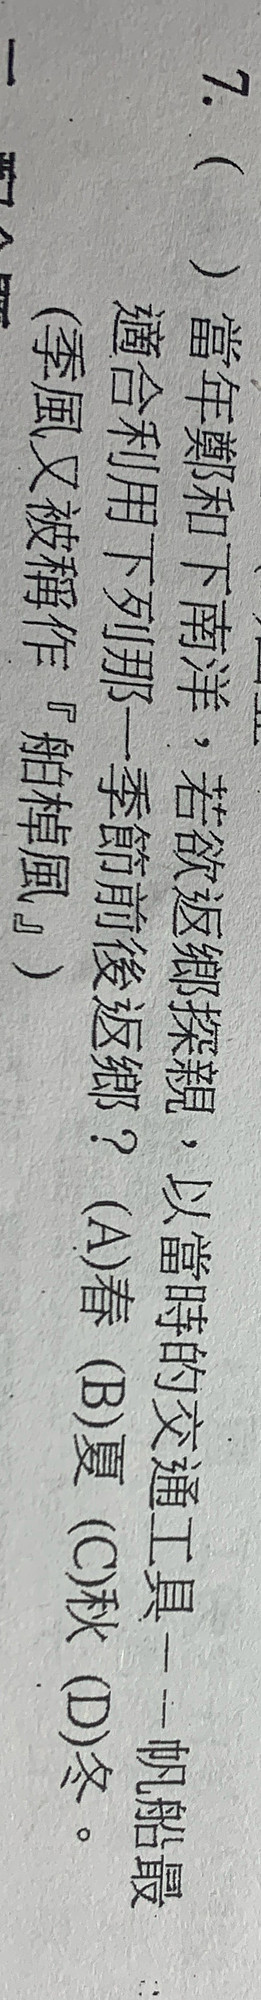 7. (　　) 當年鄭和下南洋，若欲返鄉探親，以當時的交通工具－－帆船最
適合利用下列那一季節前後返鄉？ (A)春 (B)夏 (C)秋 (D)冬。
(季風又被稱作『舶棹風』)